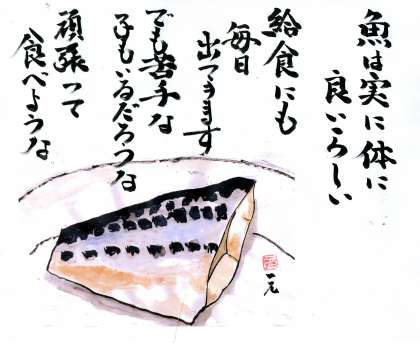 魚は実に体に
良いらしい
給食にも
毎日
出てきます
でも苦手な
子もいるだろうな
頑張って
食べような
一元